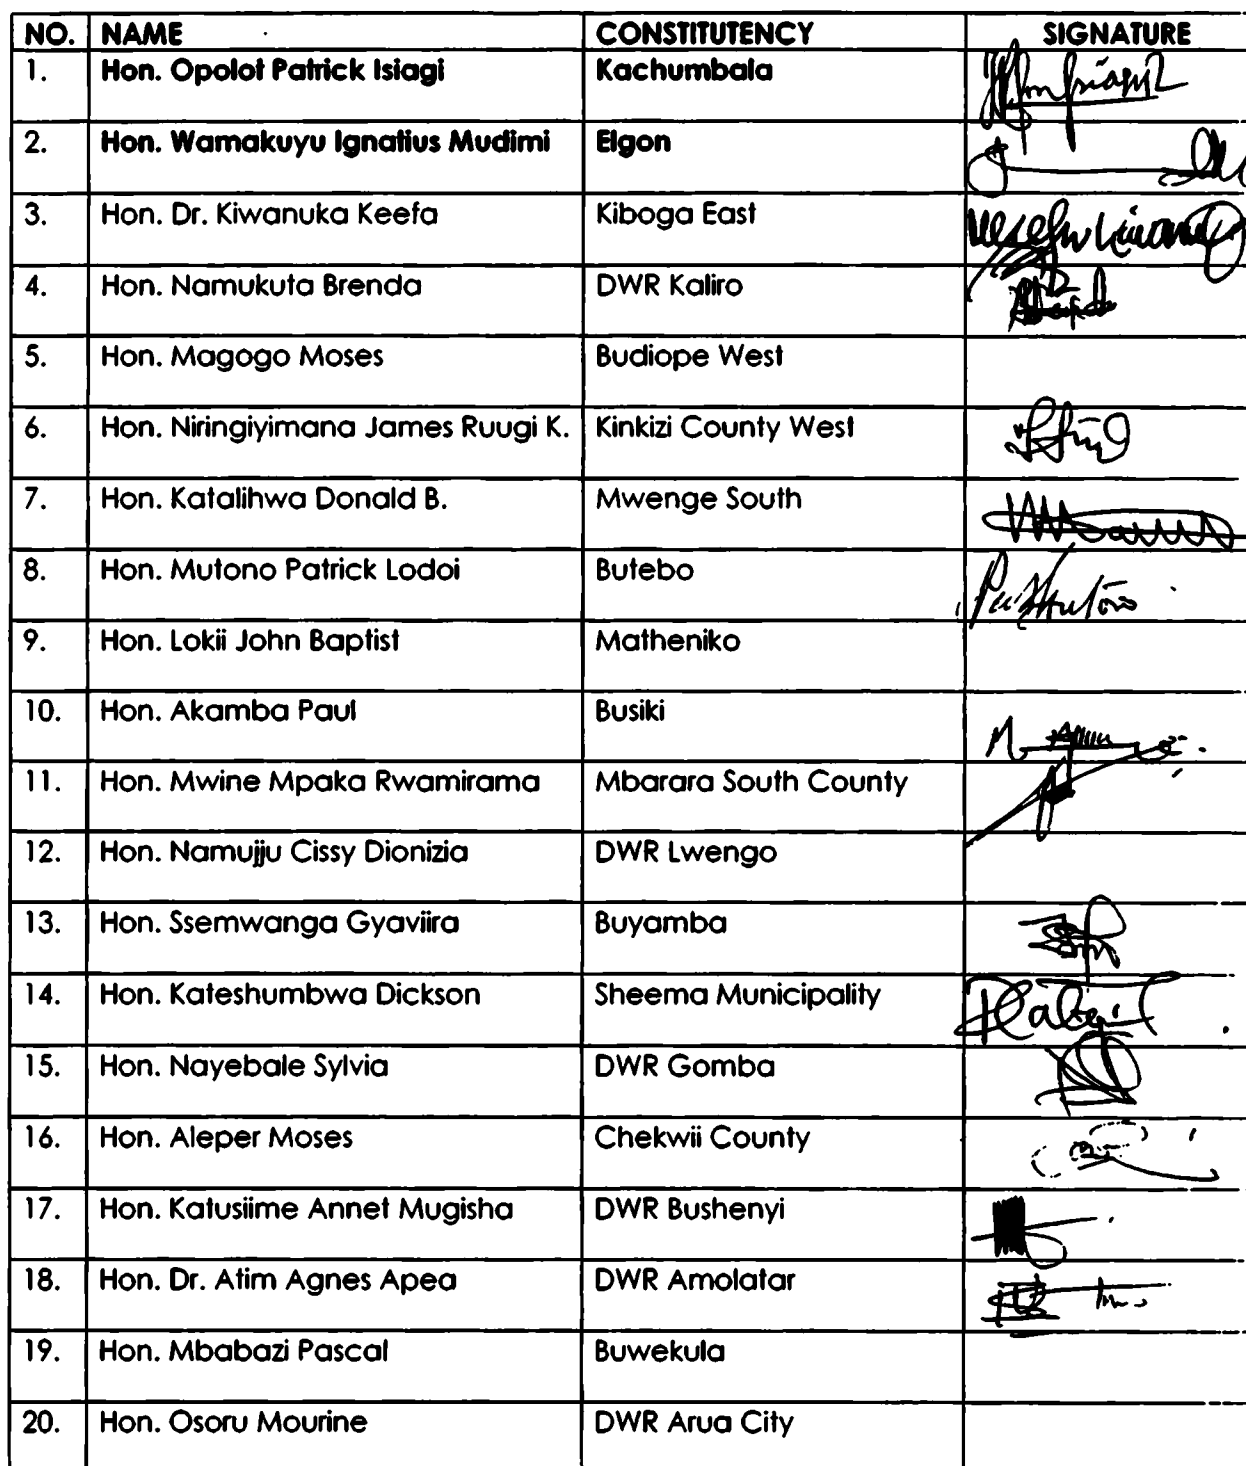 NO. NAME CONSTITUTENCY SIGNATURE
1. Hon. Opolot Patrick Isiagi Kachumbala
2. Hon. Wamakuyu Ignatius Mudimi Elgon
3. Hon. Dr. Kiwanuka Keefa Kiboga East
4. Hon. Namukuta Brenda DWR Kaliro
5. Hon. Magogo Moses Budiope West
6. Hon. Niringiyimana James Ruugi K. Kinkizi County West
7. Hon. Katalihwa Donald B. Mwenge South
8. Hon. Mutono Patrick Lodoi Butebo
9. Hon. Lokii John Baptist Matheniko
10. Hon. Akamba Paul Busiki
11. Hon. Mwine Mpaka Rwamirama Mbarara South County
12. Hon. Namujju Cissy Dionizia DWR Lwengo
13. Hon. Ssemwanga Gyaviira Buyamba
14. Hon. Kateshumbwa Dickson Sheema Municipality
15. Hon. Nayebale Sylvia DWR Gomba
16. Hon. Aleper Moses Chekwii County
17. Hon. Katusiime Annet Mugisha DWR Bushenyi
18. Hon. Dr. Atim Agnes Apea DWR Amolatar
19. Hon. Mbabazi Pascal Buwekula
20. Hon. Osoru Mourine DWR Arua City